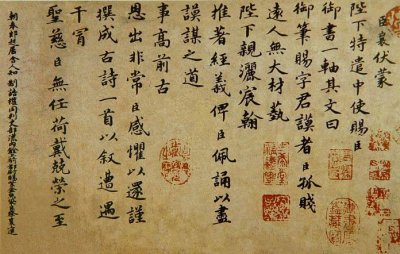 臣襄伏蒙
陛下特遣中使賜臣
御書一軸其文曰
御筆賜字君謨者臣孤賤
遠人無大材藝
陛下親灑宸翰
推著經義俾臣佩誦以盡
謨謀之道
事高前古
恩出非常臣感懼以還謹
撰成古詩一首以敘遭遇
干冒
聖慈臣無任荷戴兢榮之至
朝奉郎起居舍人知制誥權同判吏部流內銓